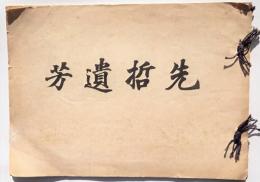 先哲遺芳